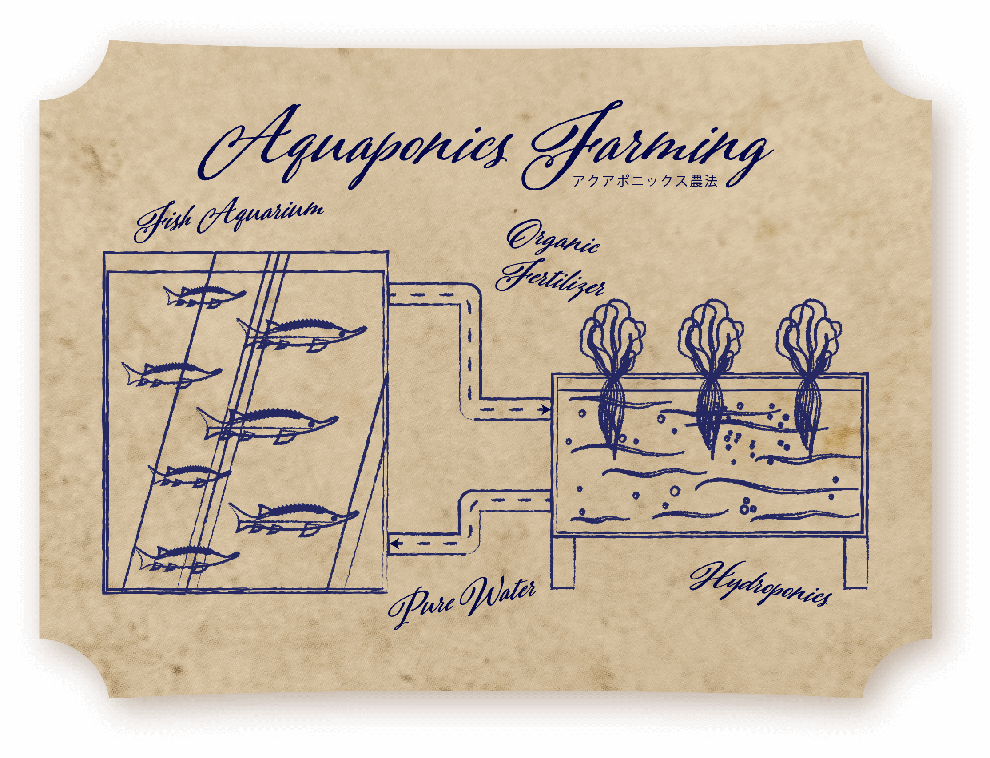 Aquaponics Farming
アクアポニックス農法
Fish Aquarium
Organic
Fertilizer
Pure Water
Hydroponics